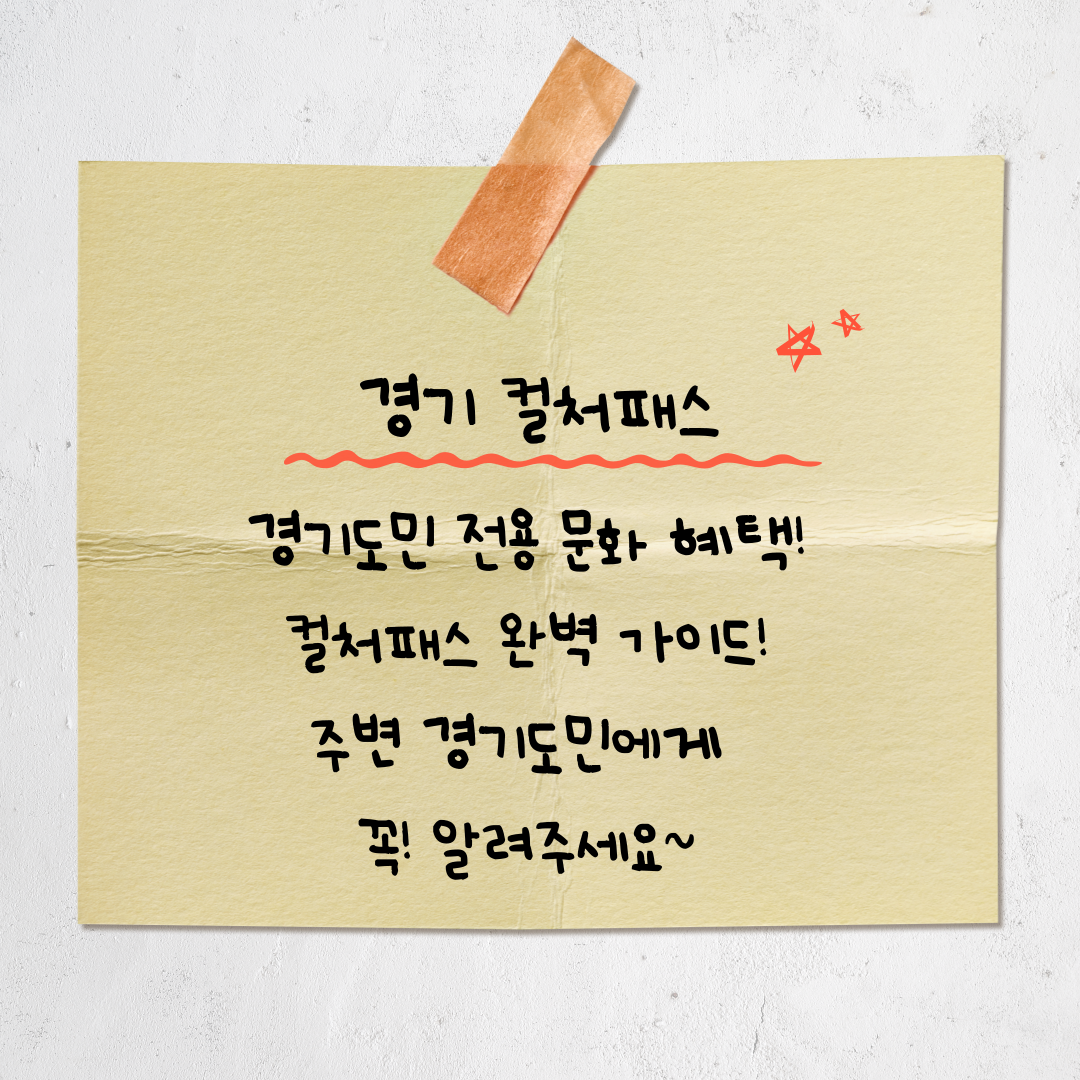 경기 컬처패스
경기도민 전용 문화 혜택!
컬처패스 완벽 가이드!
주변 경기도민에게
꼭! 알려주세요~